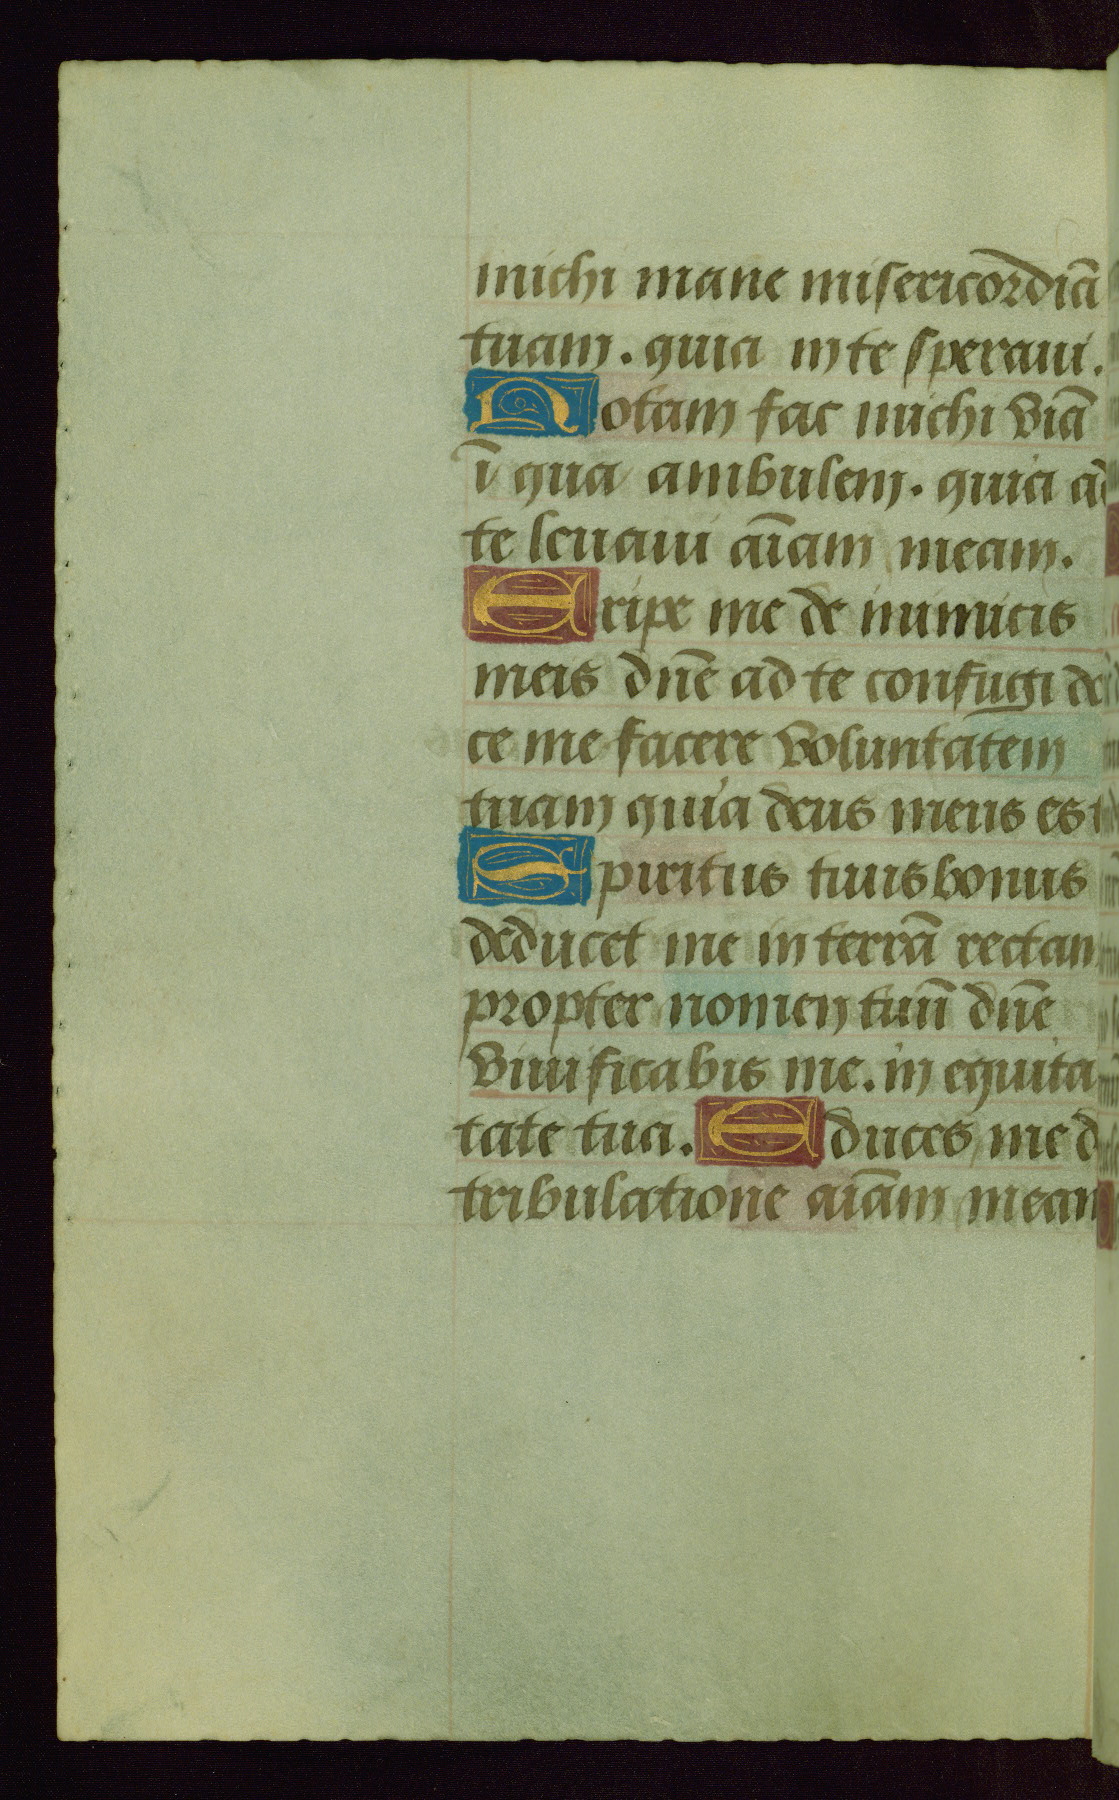 michi mane misericordiā
tuam. quia in te speraui.
Notam fac michi viā
ī qua ambulem. quia ad
te leuaui aīam meam.
Eripe me de inimicis
meis dn̄e ad te confugi do
ce me facere voluntatem
tuam quia deus meus es t
Spiritus tuus bonus
deducet me in terrā rectam
propter nomen tuū dn̄e
viuificabis me. in equita
tate tua. Educes me d
tribulatione aīam meam